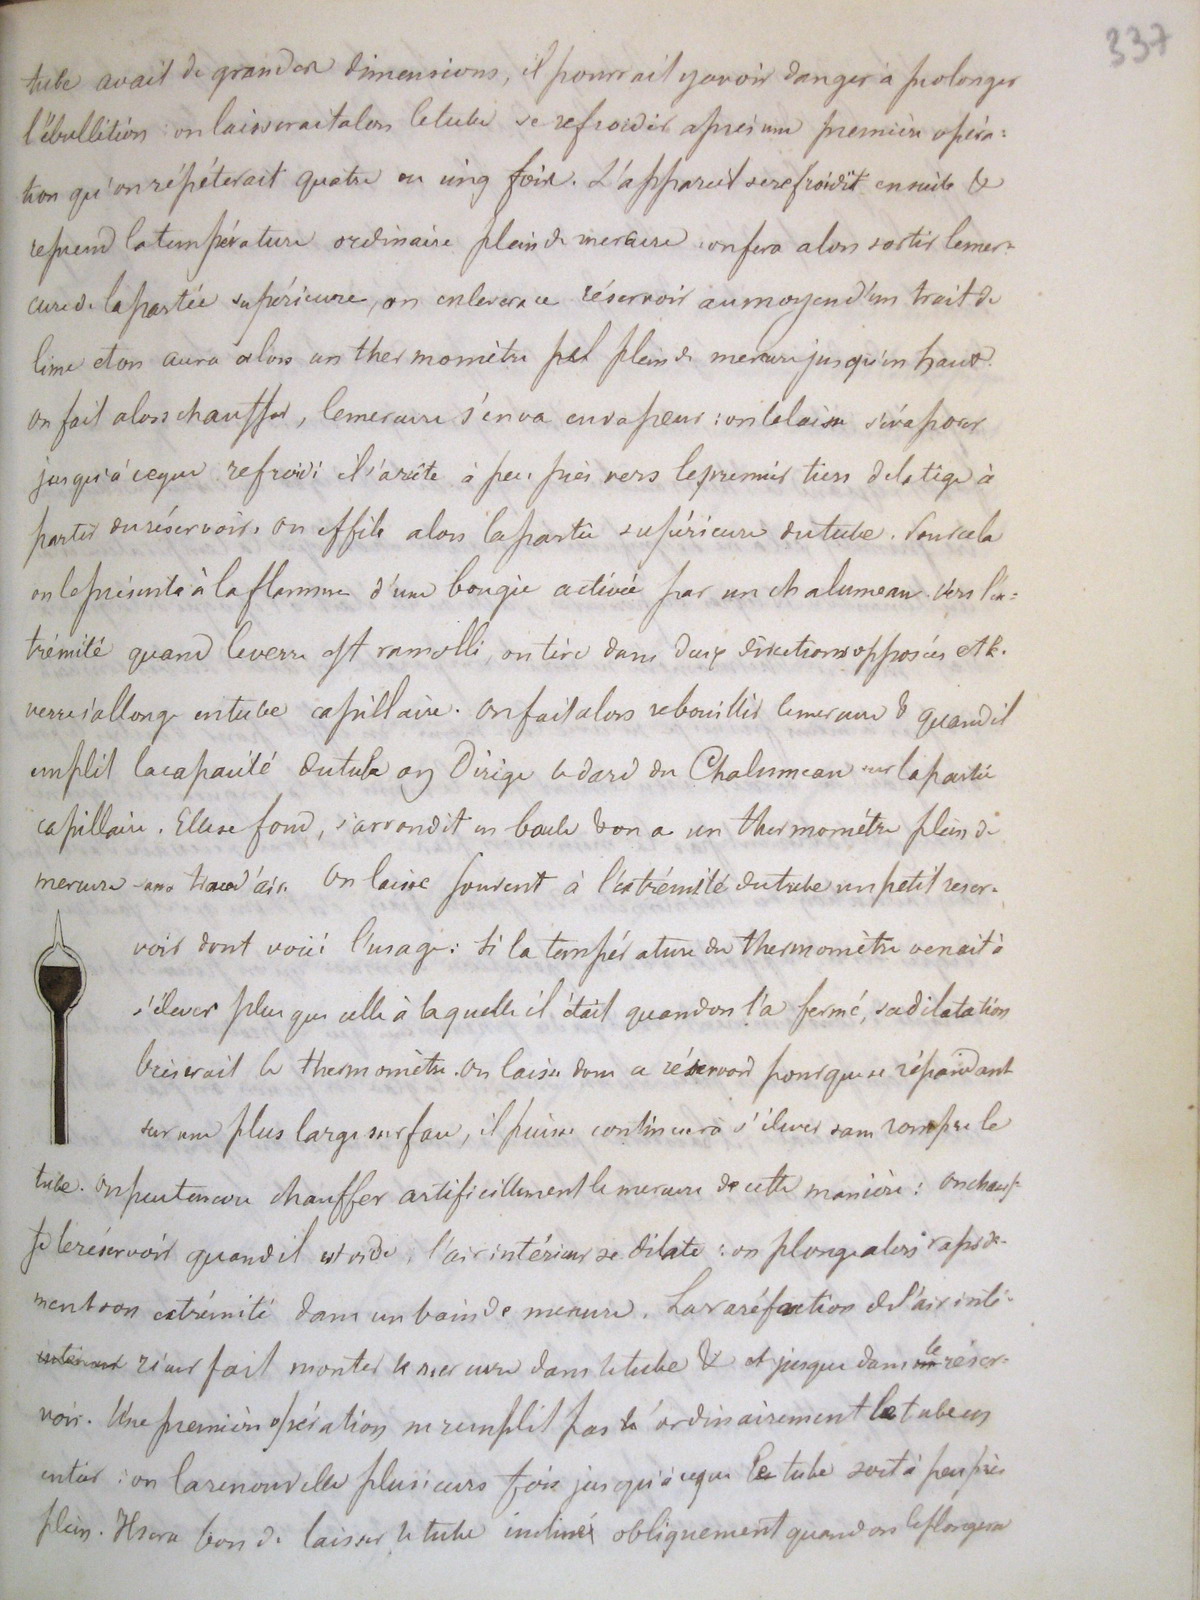 337
tube avait de grandes dimensions, il pourrait y avoir danger à prolonger
l'ébullition : on laisserait alors le tube se refroidir après une première opéra=
tion qu'on répéterait quatre ou cinq fois. L'appareil se refroidit ensuite &
reprend la température ordinaire plein de mercure : on fera alors sortir le mer=
cure de la partie supérieure, on enlevera ce réservoir au moyen d'un trait de
lime et on aura alors un thermomètre plein de mercure jusqu'en haut.
On fait alors chauffer, le mercure s'en va en vapeur : on le laisse s'évaporer
jusqu'à ceque refroidi il s'arète à peu près vers le premier tiers de la tige à
partir du réservoir. On effile alors la partie supérieure du tube. Pour cela
on le présente à la flamme d'une bougie activée par un chalumeau. Vers l'ex=
trémité quand le verre est ramolli, on tire dans deux directions opposées et le
verre s'allonge en tube capillaire. On fait alors rebouillir le mercure & quand il
emplit la capacité du tube on Dirige le dard du Chalumeau sur la partie
capillaire. Elle se fond, s'arrondit en boule & on a un thermomètre plein de
mercure sans trace d'air. On laisse souvent à l'extrémité du tube un petit reser-
voir dont voici l'usage : Si la température du thermomètre venait à
s'élever plus que celle à laquelle il était quand on l'a fermé, sa dilatation
briserait le thermomètre. On laisse donc ce réservoir pour que se répandant
sur une plus large surface, il puisse continuer à s'élever sans rompre le
tube. On peut encore chauffer artificiellement le mercure de cette manière : on chauf-
fe le réservoir quand il est vide ; l'air intérieur se dilate : on plonge alors rapide-
ment son extrémité dans un bain de mercure. La raréfaction de l'air inté-
rieur fait monter le mercure dans le tube & et jusque dans le réser-
voir. Une première opération ne remplit pas ordinairement le tube en
entier : on la renouvelle plusieurs fois jusqu'à ceque le tube soit à peu près
plein. Il sera bon de laisser le tube incliné obliquement quand on le plongera